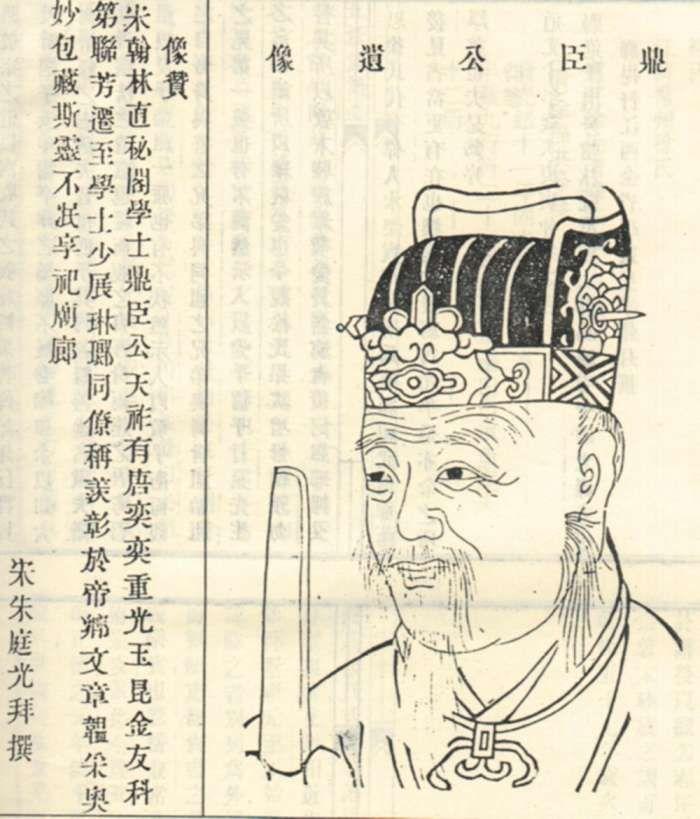 鼎臣公遺像
像贊
宋翰林直秘閣學士鼎臣公天祚有唐奕奕重光玉昆金友科
第聯芳遷至學士少展琳瑯同僚稱羨彰於帝文章韞采奥
妙包藏斯靈不泯享祀廟廊
宋朱庭光拜撰